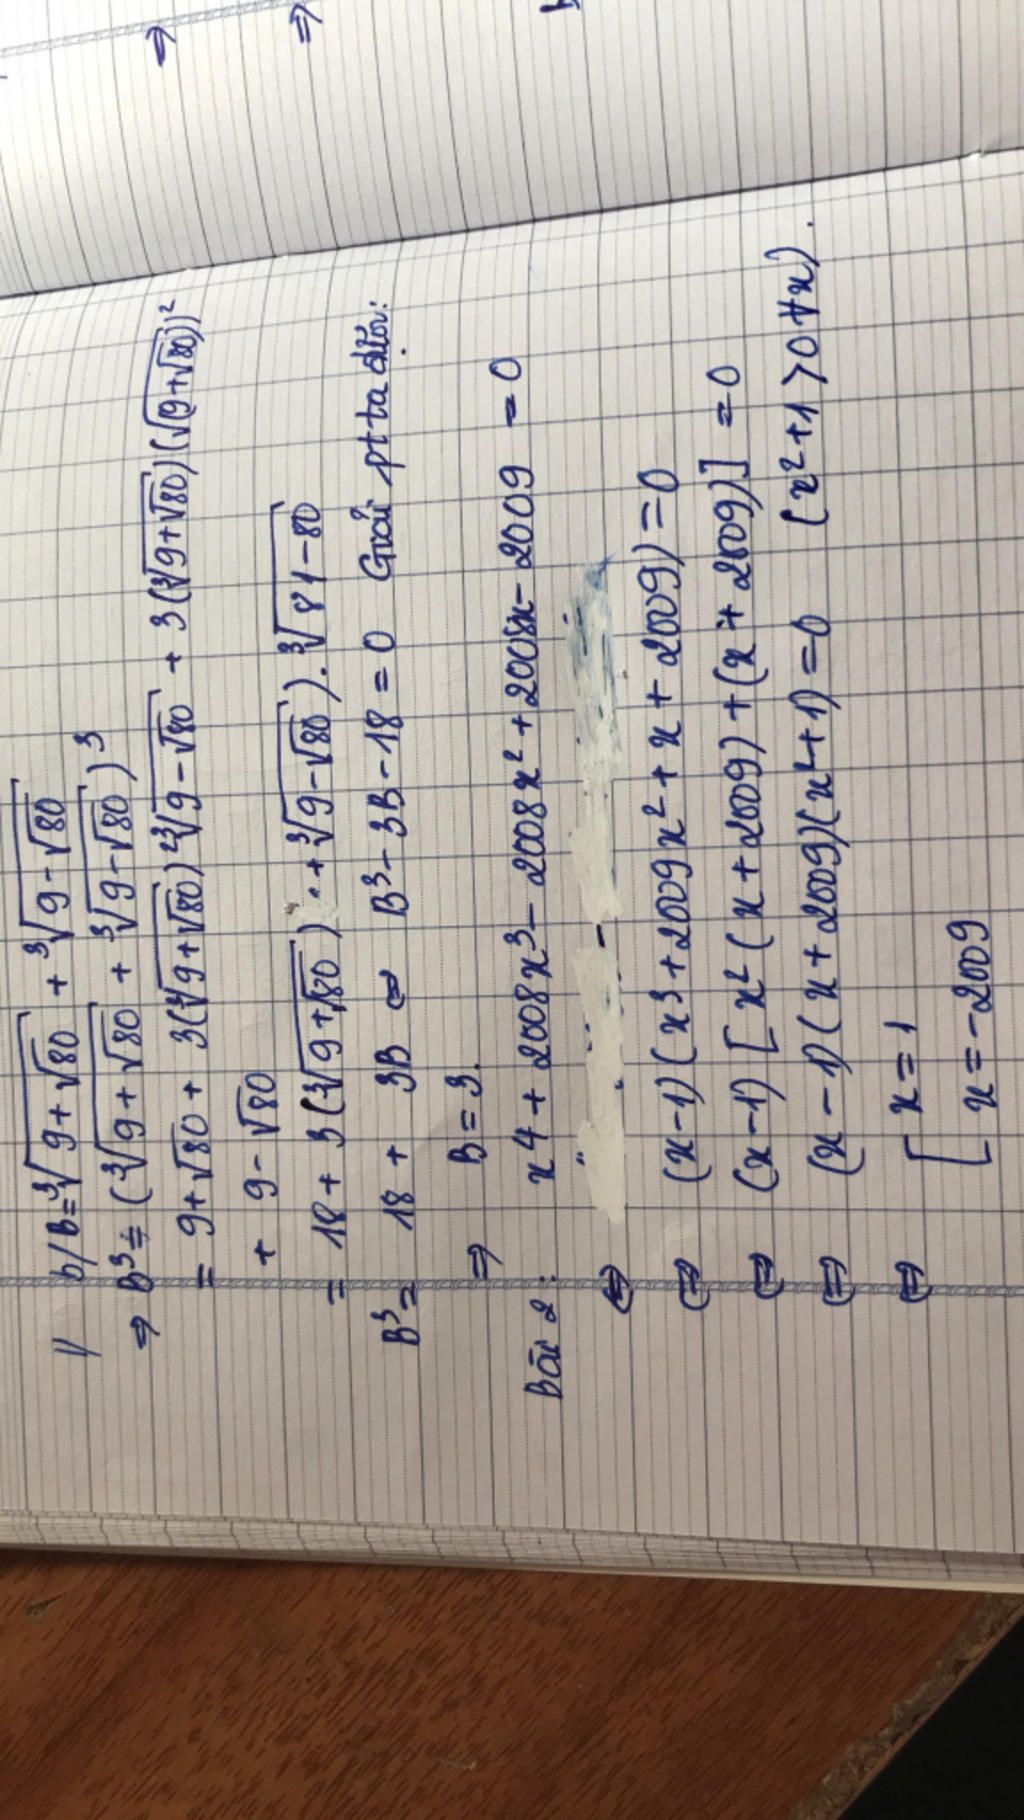 1/ b/ B = ∛(9+√80) + ∛(9-√80)
⇒ B³ = (∛(9+√80) + ∛(9-√80))³
= 9+√80 + 3(∛(9+√80))² ∛(9-√80) + 3(∛(9+√80))(√(9+√80))²
+ 9-√80
= 18 + 3(∛(9+√80)) + ∛(9-√80)). ∛(81-80)
B³ = 18 + 3B ⇔ B³ - 3B - 18 = 0 Giải pt ta được:
⇒ B = 3.
Bài 2: x⁴ + 2008x³ - 2008x² + 2008x - 2009 = 0
⇔
⇔ (x-1)(x³ + 2009x² + x + 2009) = 0
⇔ (x-1)[x²(x+2009) + (x+2009)] = 0
⇔ (x-1)(x+2009)(x²+1) = 0 (x²+1 > 0 ∀x).
⇔ [ x = 1
x = -2009